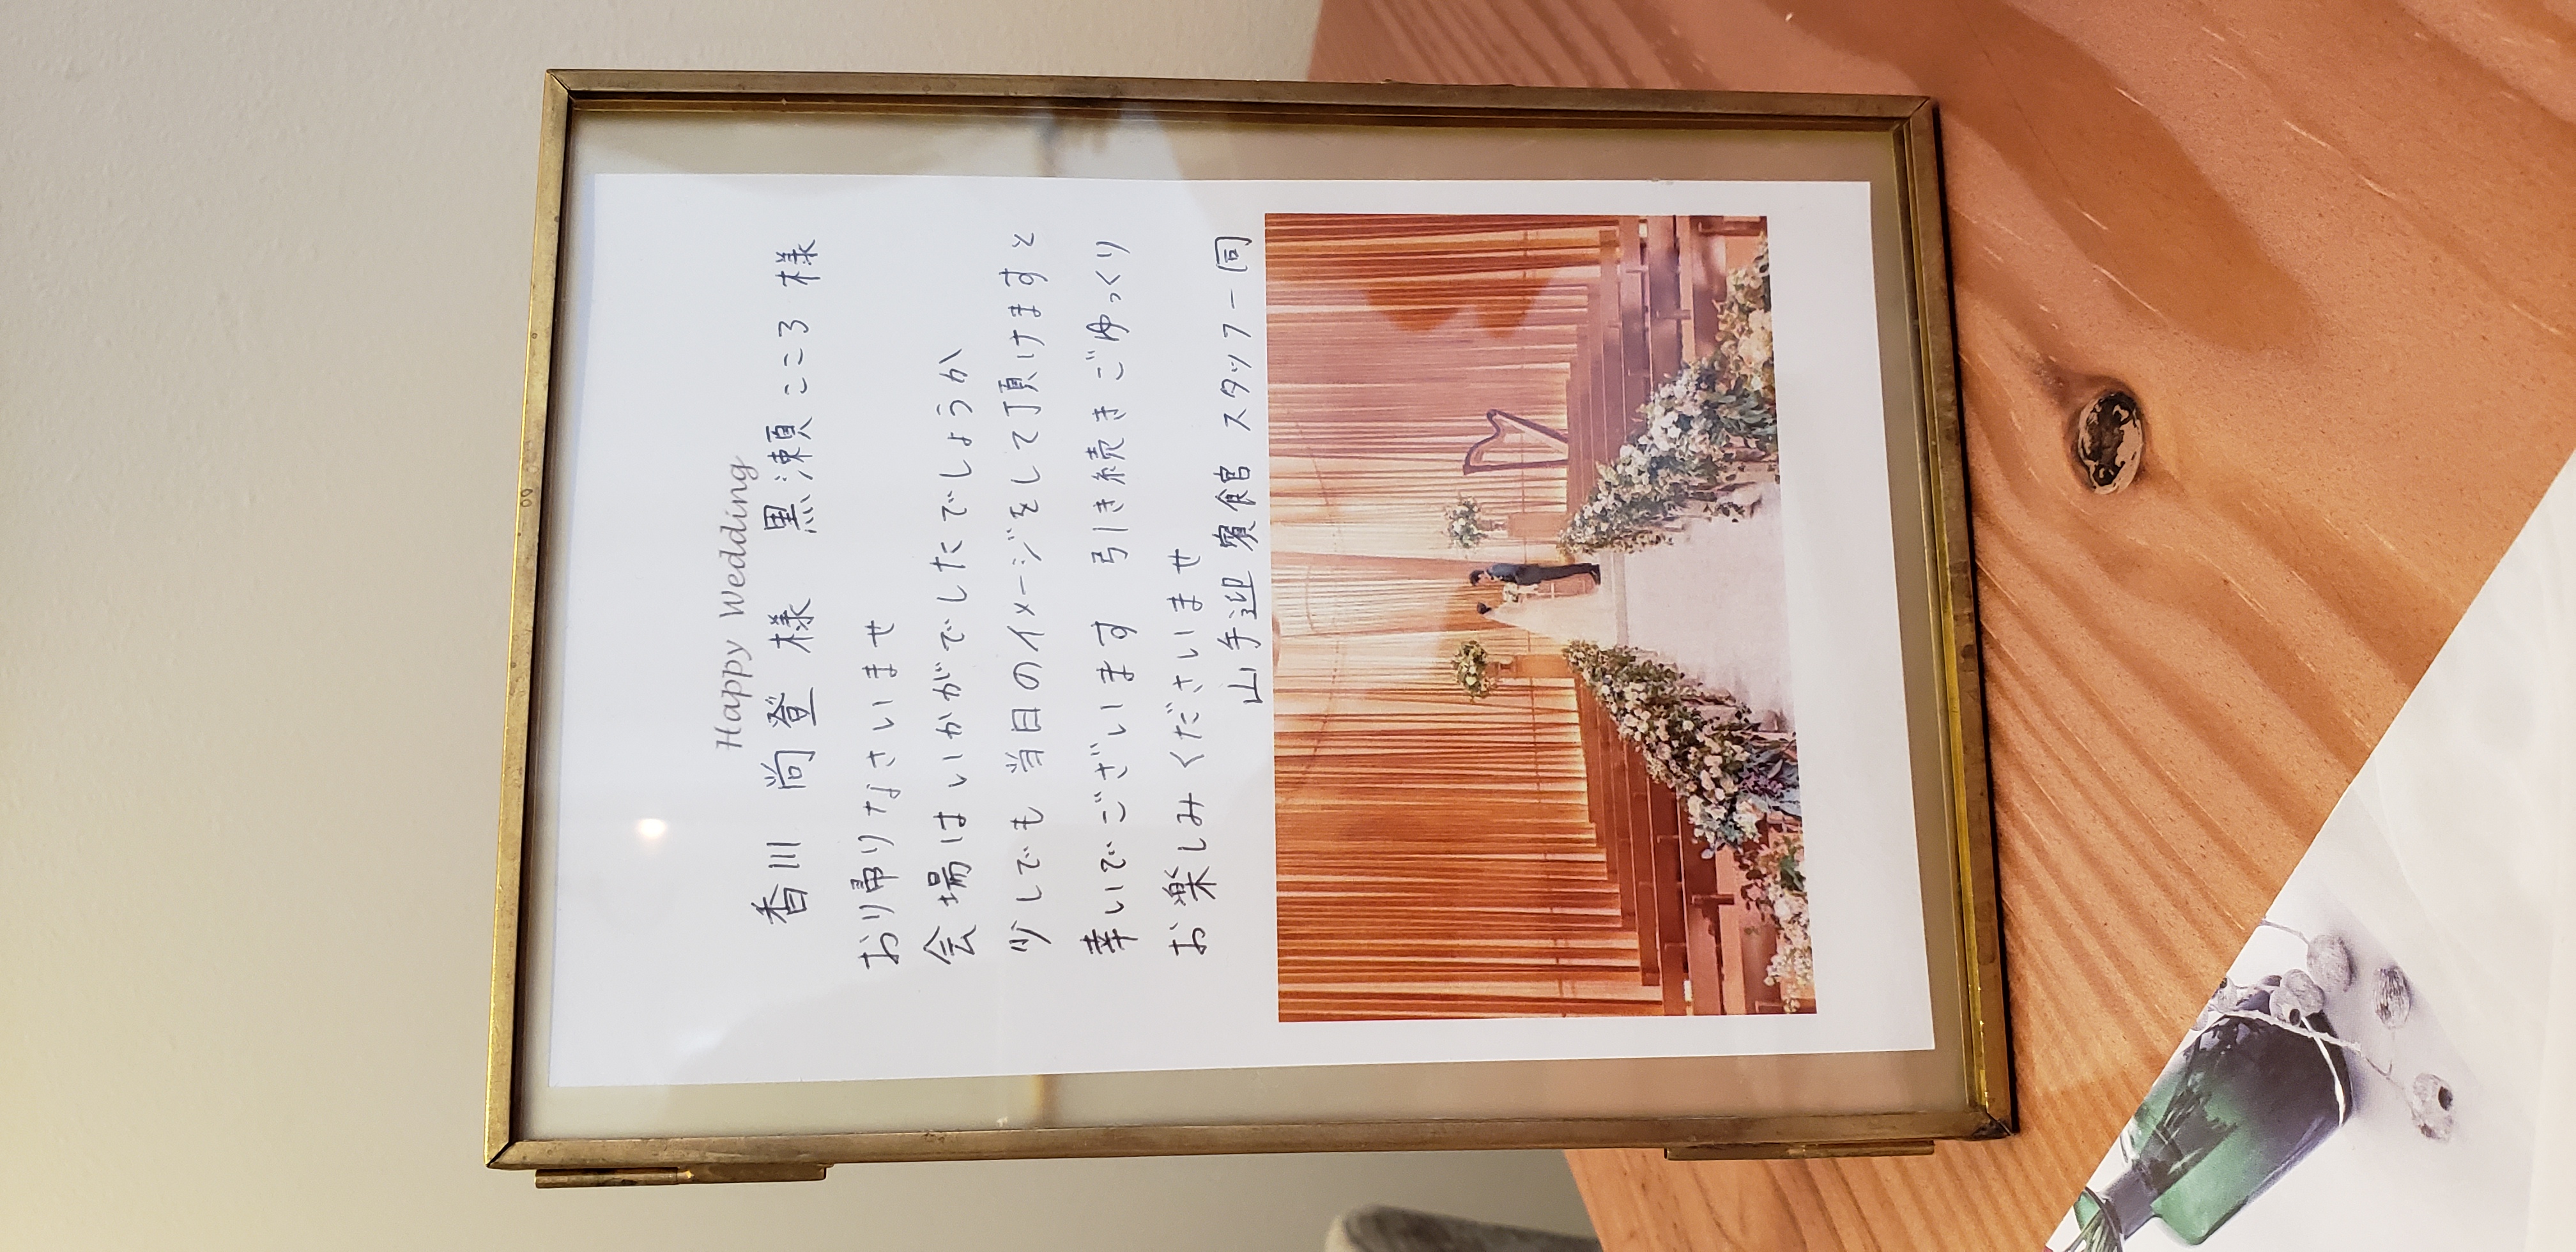 Happy Wedding
香川 尚登 様 黒瀬こころ 様
おり帰りなさいませ
会場はいかがでしたでしょうか
少しでも 当日のイメージをして頂けますと
幸いでございます 引き続きごゆっくり
お楽しみくださいませ
山手迎賓館 スタッフ一同